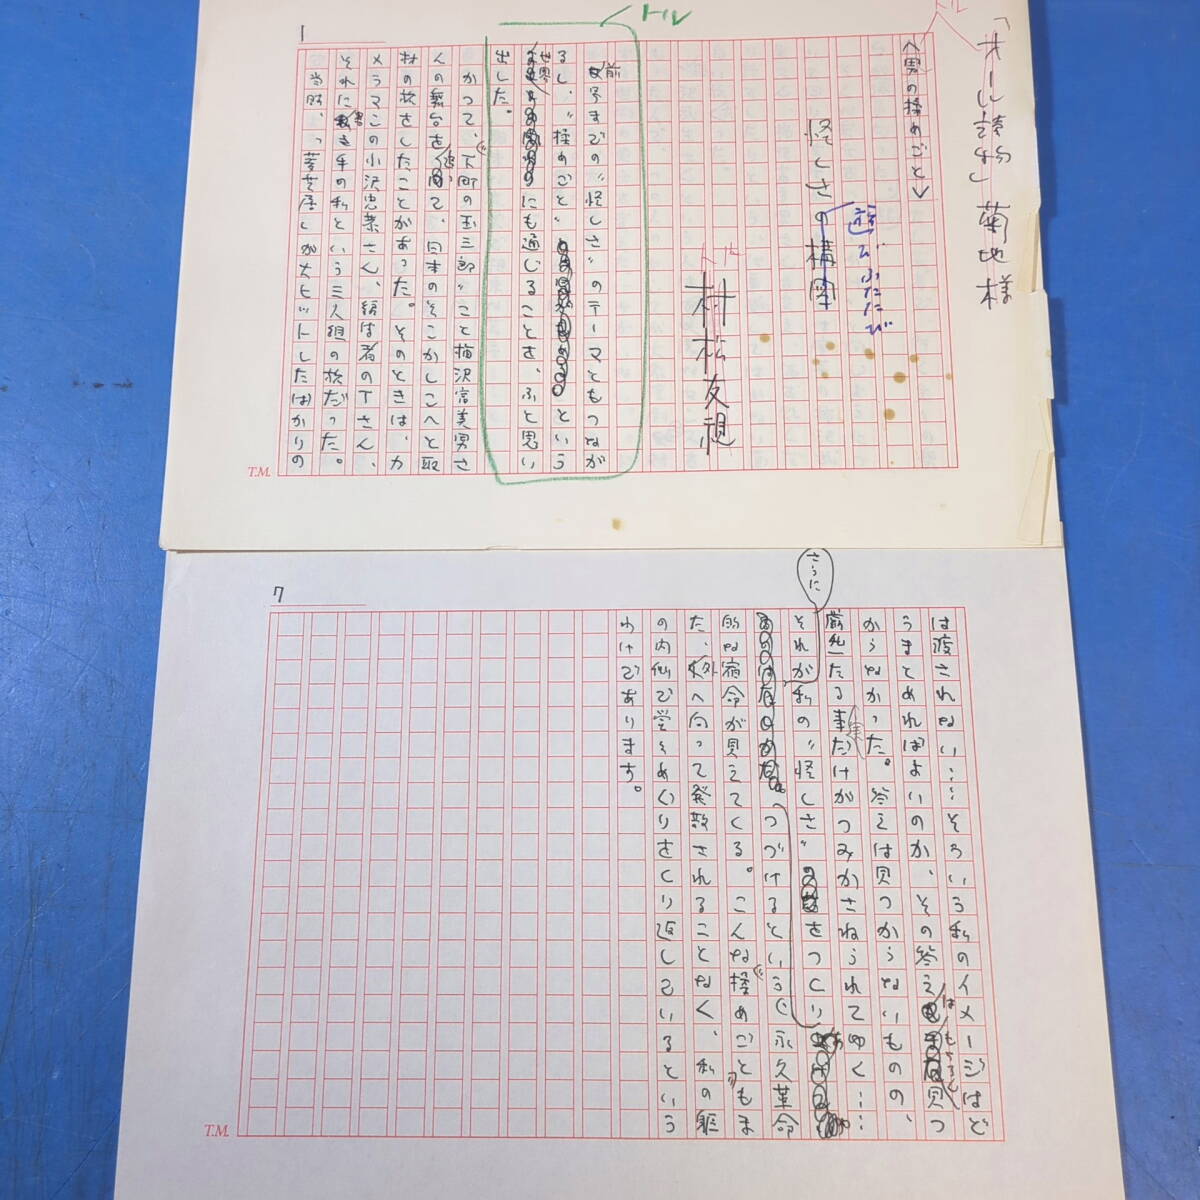 「オール讀物」菊地様
トル
<男の揉めごと>
怪しさの構図
ふたたび
トル
村松友視
トル
1
前号までの〝怪しさ〟のテーマともつなが
るし、〝揉めごと〟という
世界にも通じることを、ふと思い
出した。
かつて、〝下町の玉三郎〟こと梅沢富美男さ
んの舞台を追って、日本のそこかしこへと取
材の旅をしたことがあった。そのときは、カ
メラマンの小沢忠恭さん、編集者のTさん、
それに書き手の私という三人組の旅だった。
当時、〝夢芝居〟が大ヒットしたばかりの
T.M.
7
は渡されない……そういう私のイメージはど
うまとめればよいのか、その答えはもちろん見つ
からなかった。答えは見つからないものの、
厳然たる事実だけがつみかさねられてゆく……
それが私の〝怪しさ〟をつくりあ
さらに
つづけるという永久革命
的な宿命が見えてくる。こんな〝揉めごと〟もま
た、外へ向って発散されることなく、私の躯
の内側で堂々めぐりをくり返しているという
わけであります。
T.M.